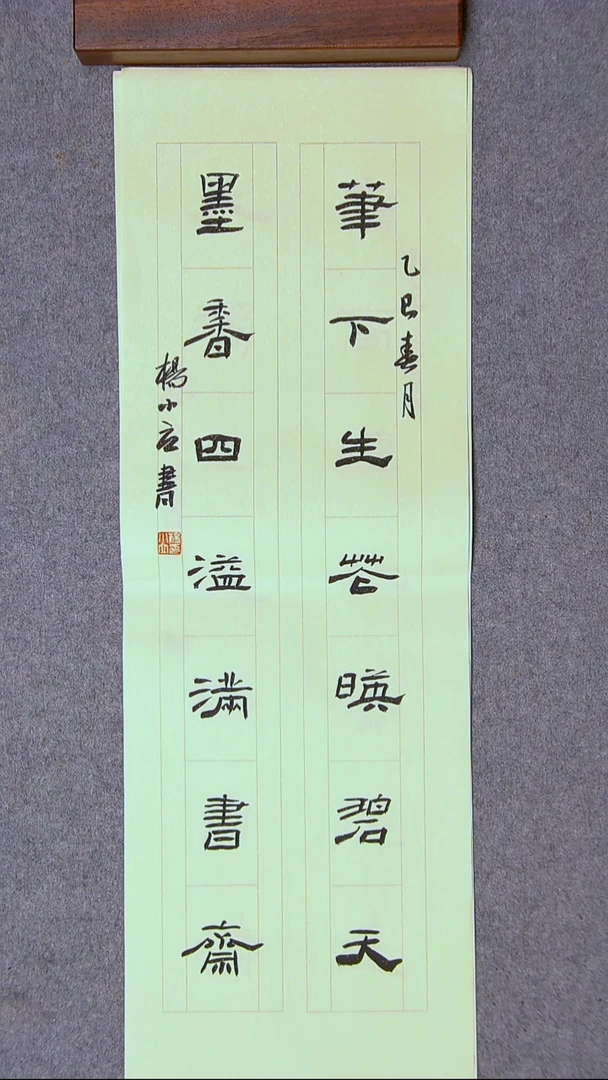 乙巳春月
筆下生花暎碧天
墨香四溢滿書齋
楊小書